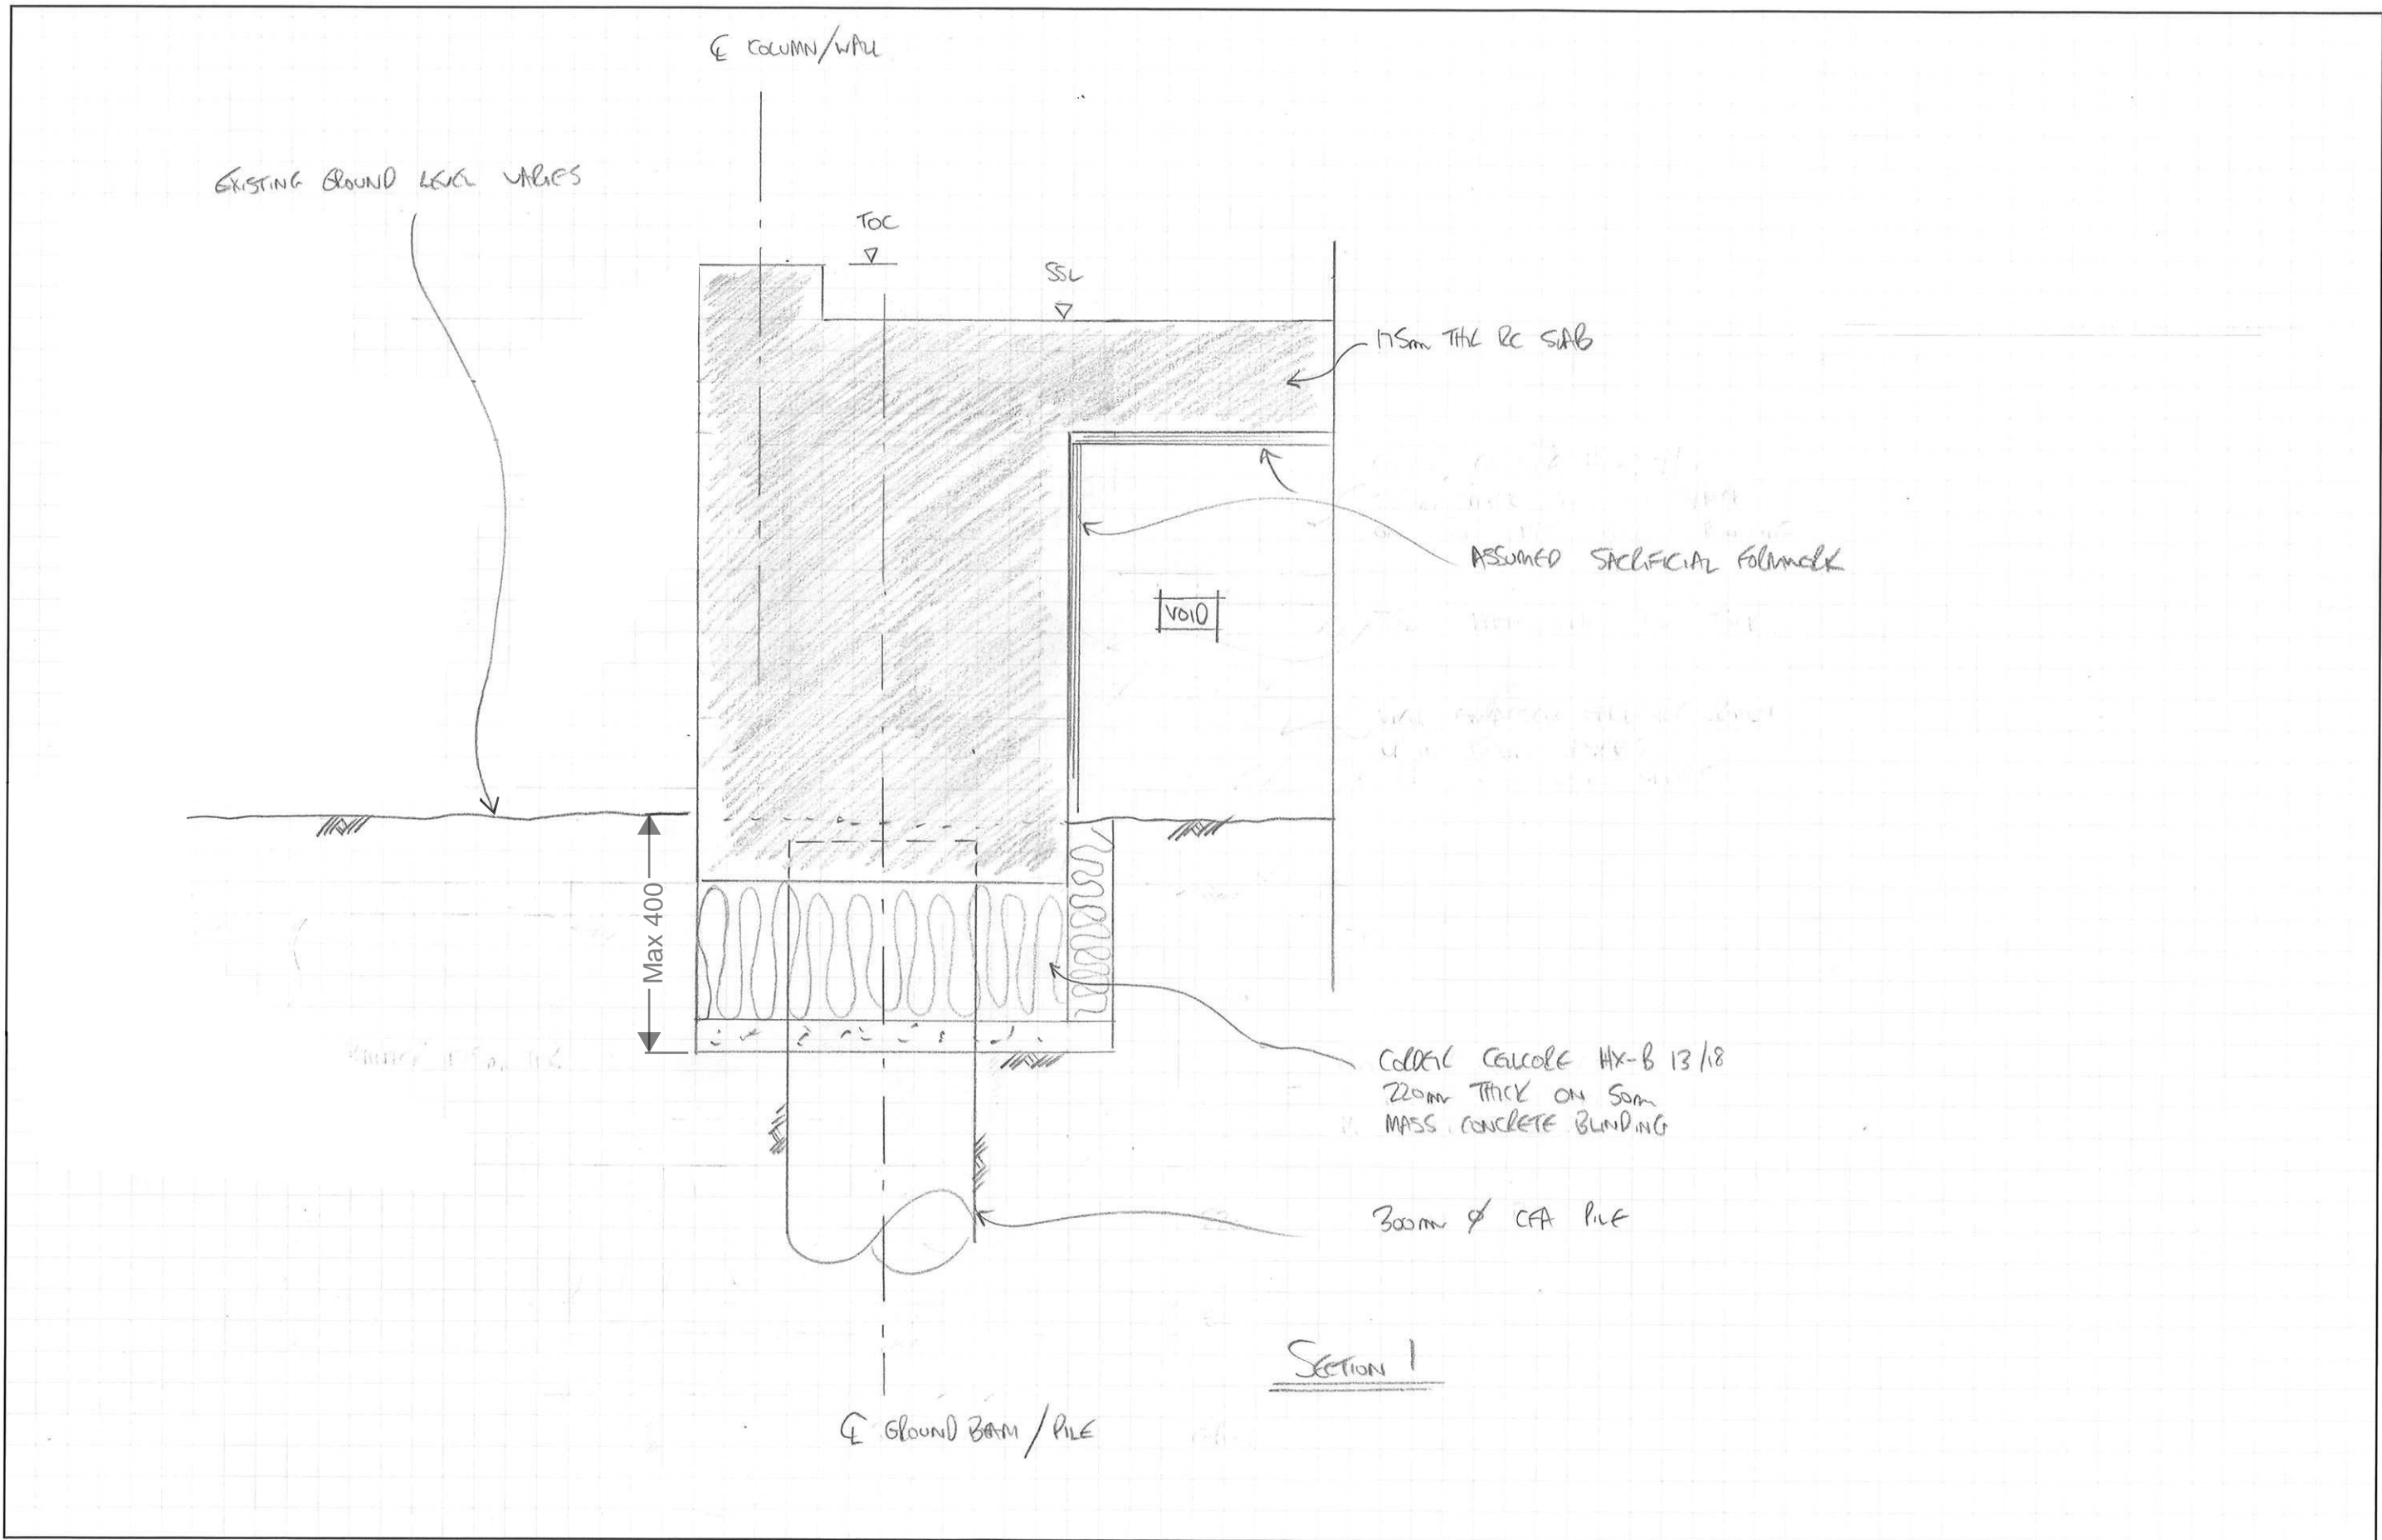 ℄ COLUMN/WALL
EXISTING GROUND LEVEL VARIES
TOC
SSL
175mm THK RC SLAB
ASSUMED SACRIFICIAL FORMWORK
VOID
Max 400
CORDEK CELLCORE HX-B 13/18
220mm THICK ON 50mm
MASS CONCRETE BLINDING
300mm Ø CFA PILE
SECTION 1
℄ GROUND BEAM / PILE